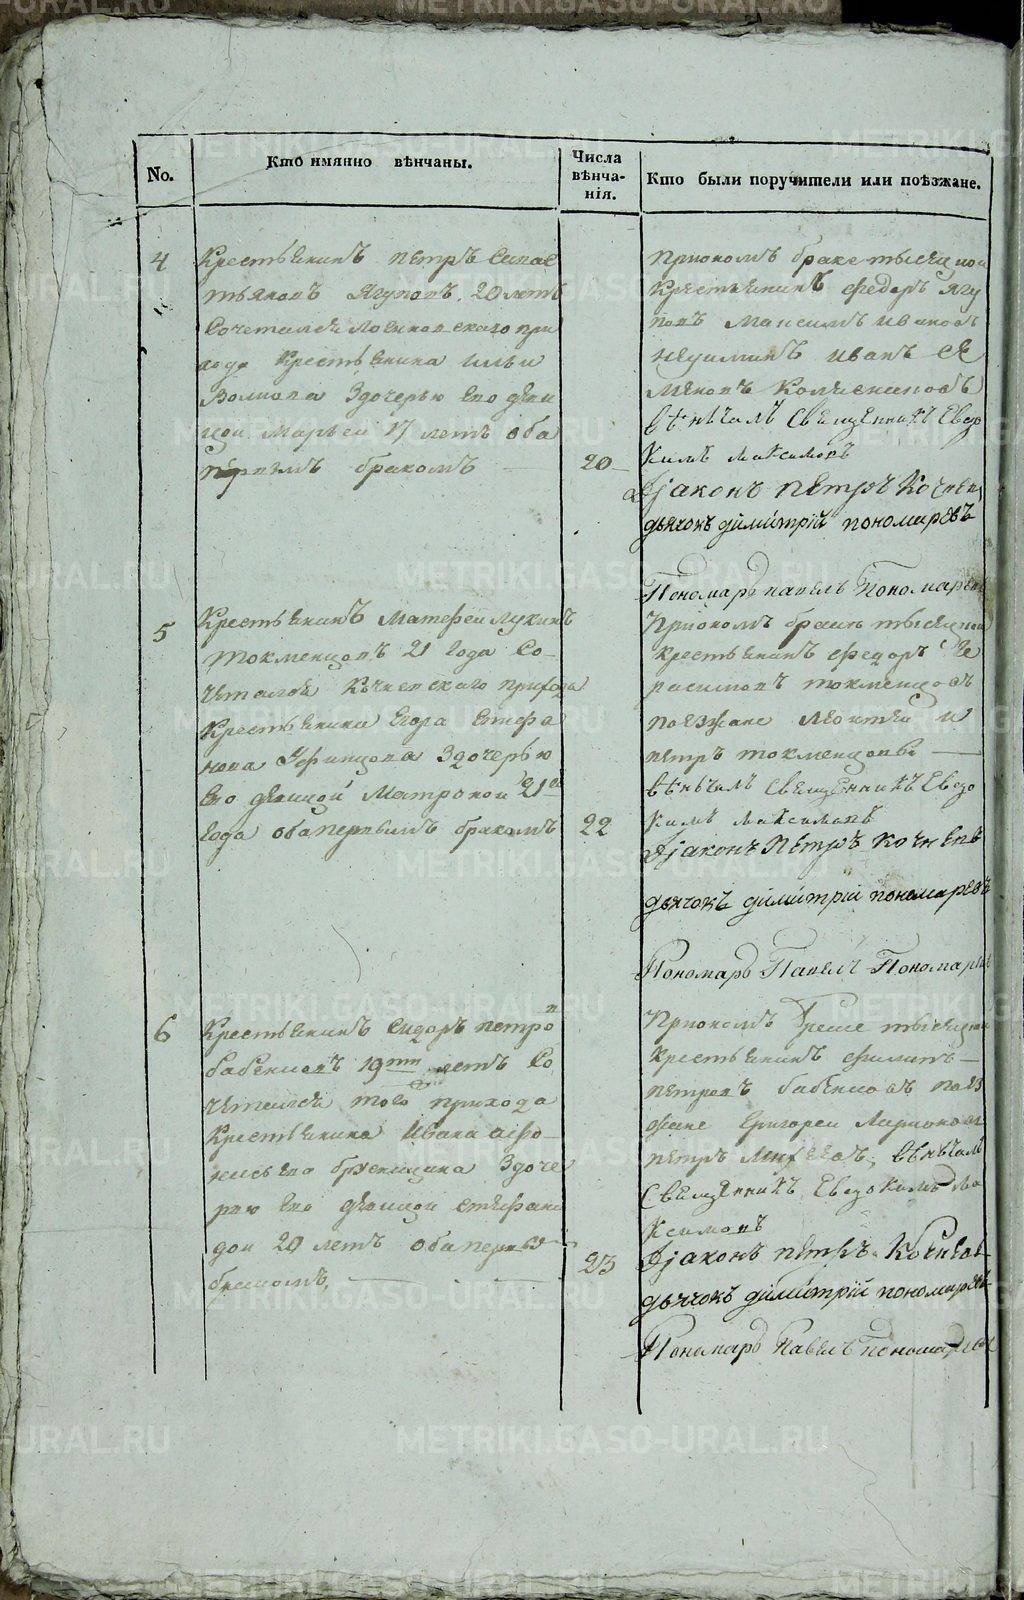 No.
Кто имянно вѣнчаны.
Числа
вѣнча-
нія.
Кто были поручители или поѣзжане.
4
Крестьянинъ петръ Сивас
тьяновъ Ягуповъ 20 летъ
Сочетался Логиновскаго при
хода Крестьянина Ильи
Волкова Здочерью его деви
цой Марьей 17 летъ оба
первымъ бракомъ
20
Приономъ браке тысецкои
Крестьянинъ Федоръ Ягу
повъ Максимъ Ивановъ
Иванъ Се
меновъ
Вѣнчалъ Священникъ Евдо
кимъ Максимовъ
Діаконъ Петръ Кочнев
дьячокъ димитрій пономаревъ
Пономарь павелъ Пономарев
5
Крестьянинъ Матфей Лукинъ
Токменцовъ 21 Года Со-
четался Кочневскаго прихода
Крестьянина Егора Стефа
нова Уфинцова Здочерью
Его девицой Матроной 21
Года оба первымъ бракомъ
22
Приономъ браке тысецкои
крестьянинъ Федоръ Ге
расимовъ токменцовъ
поезжане Леонтей и
петръ токменцовы
вѣнчалъ Священникъ Евдо
кимъ Максимовъ
Діаконъ Петръ Кочневъ
дьячокъ димитрій пономаревъ
Пономарь Павелъ Пономарев
6
Крестьянинъ Сидоръ петров
бабенковъ 19 летъ Со
четался того прихода
Крестьянина Ивана Афо-
насьева Здоче
рью Его девицой Стефани
дой 20 летъ оба первы
бракомъ
23
Приономъ браке тысецкои
Крестьянинъ филипъ
петровъ бабенковъ поез
жане Григорей Ларионовъ
петръ Михеевъ, вѣнчалъ
Священникъ Евдокимъ Ма
ксимовъ
Діаконъ петръ Кочневъ
дьячокъ димитрій пономаревъ
Пономарь Павелъ пономарев
METRIKI.GASO-URAL.RU